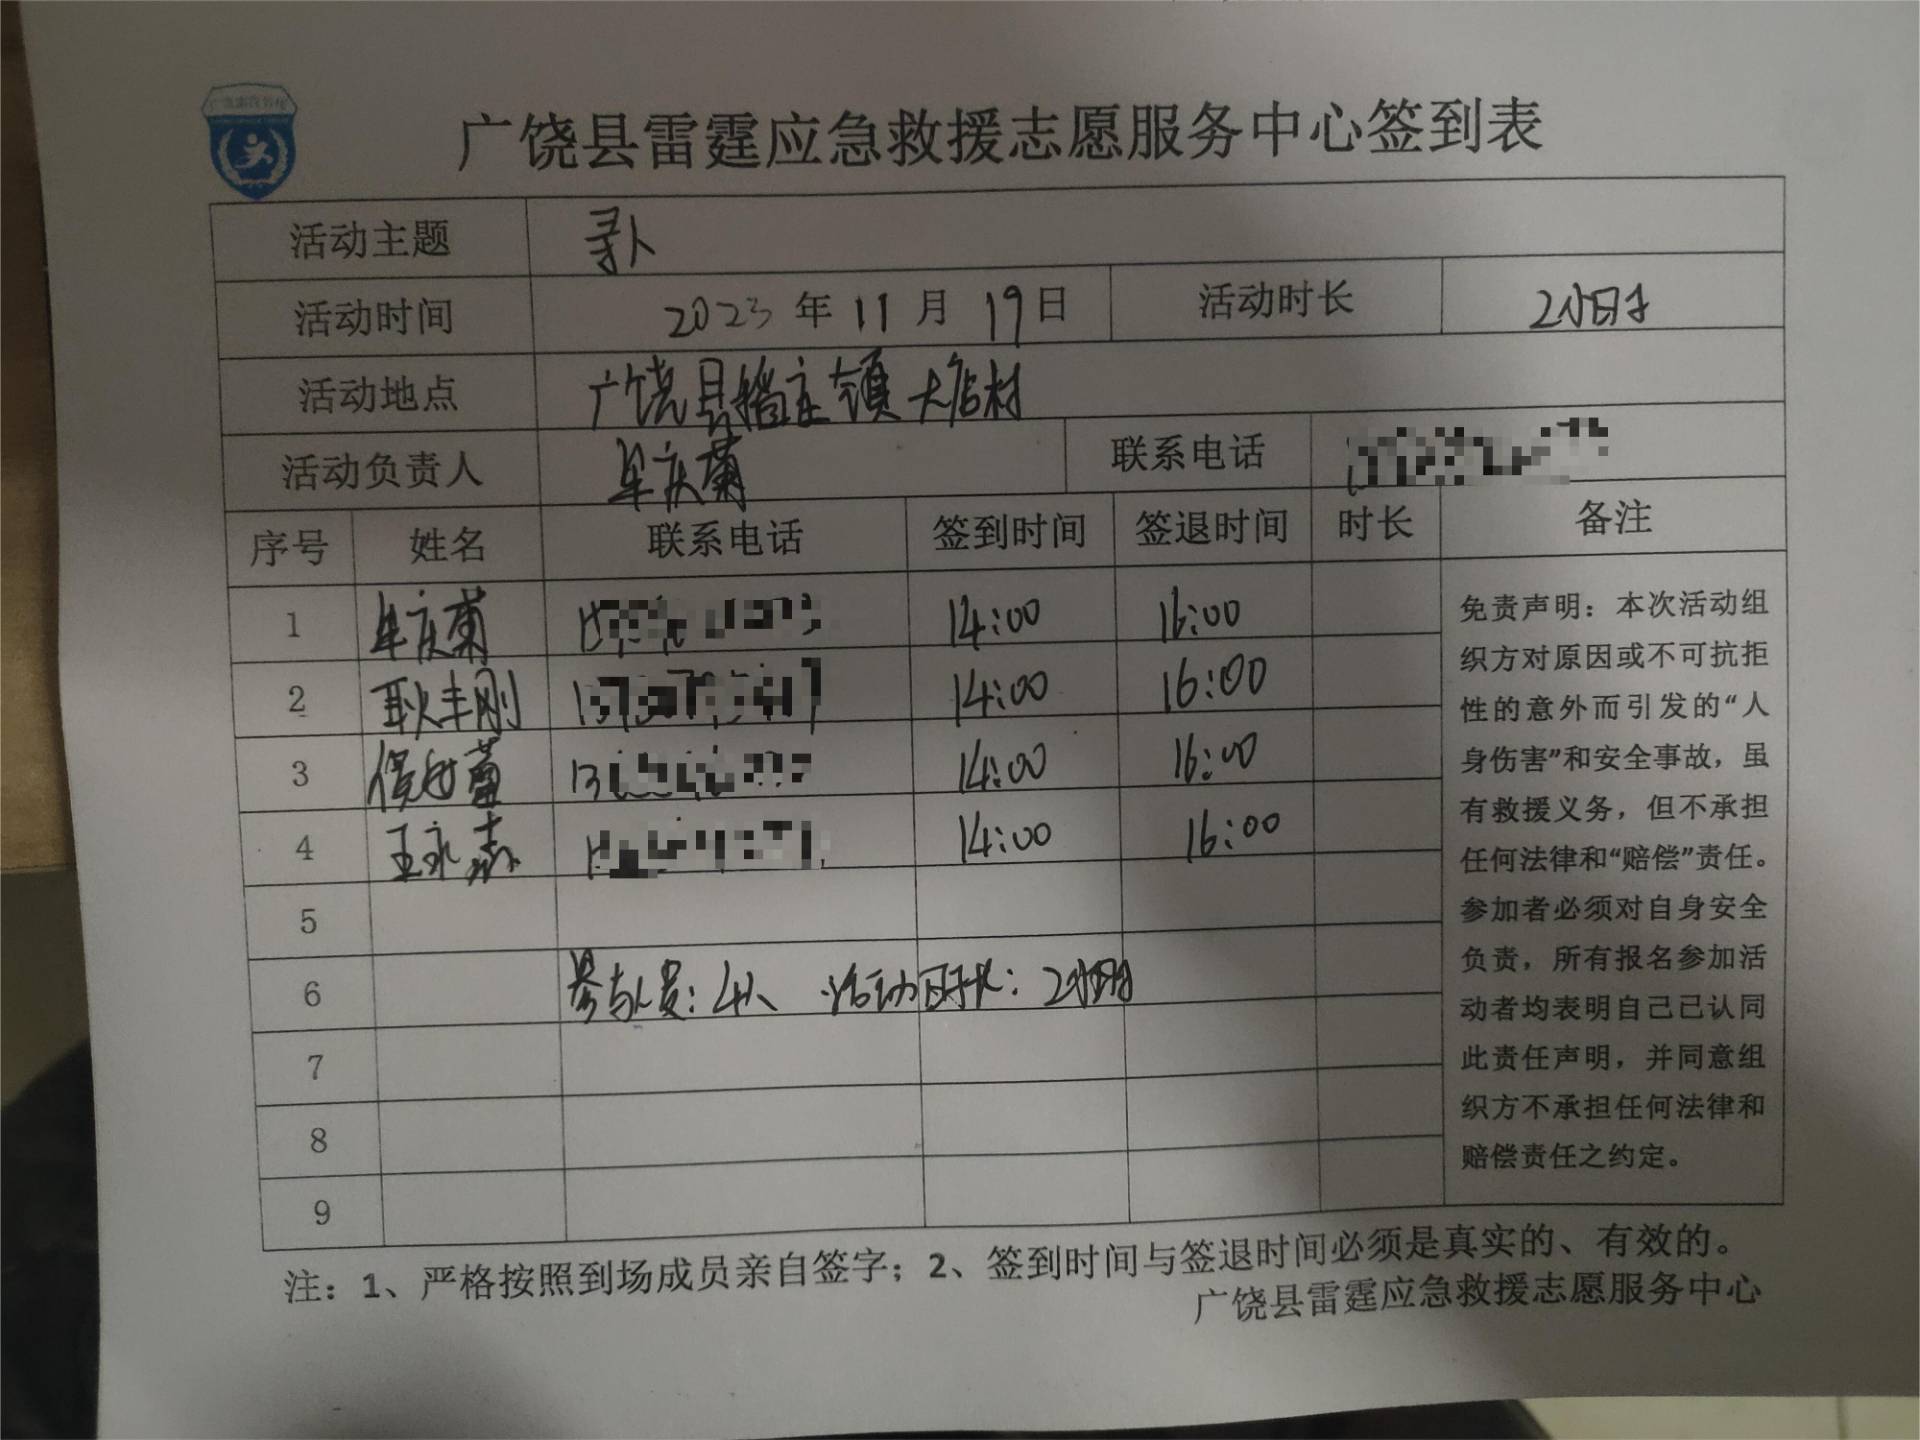 广饶县雷霆应急救援志愿服务中心签到表
活动主题 寻人
活动时间 2023 年 11 月 19 日 活动时长 2小时
活动地点 广饶县稻庄镇大店村
活动负责人 牟庆菊 联系电话
序号 姓名 联系电话 签到时间 签退时间 时长 备注
1 牟庆菊 14:00 16:00
2 耿丰刚 14:00 16:00
3 14:00 16:00
4 王永志 14:00 16:00
5
6 参与人员：4人 活动时长：2小时
7
8
9
免责声明：本次活动组
织方对原因或不可抗拒
性的意外而引发的“人
身伤害”和安全事故，虽
有救援义务，但不承担
任何法律和“赔偿”责任。
参加者必须对自身安全
负责，所有报名参加活
动者均表明自己已认同
此责任声明，并同意组
织方不承担任何法律和
赔偿责任之约定。
注：1、严格按照到场成员亲自签字；2、签到时间与签退时间必须是真实的、有效的。
广饶县雷霆应急救援志愿服务中心